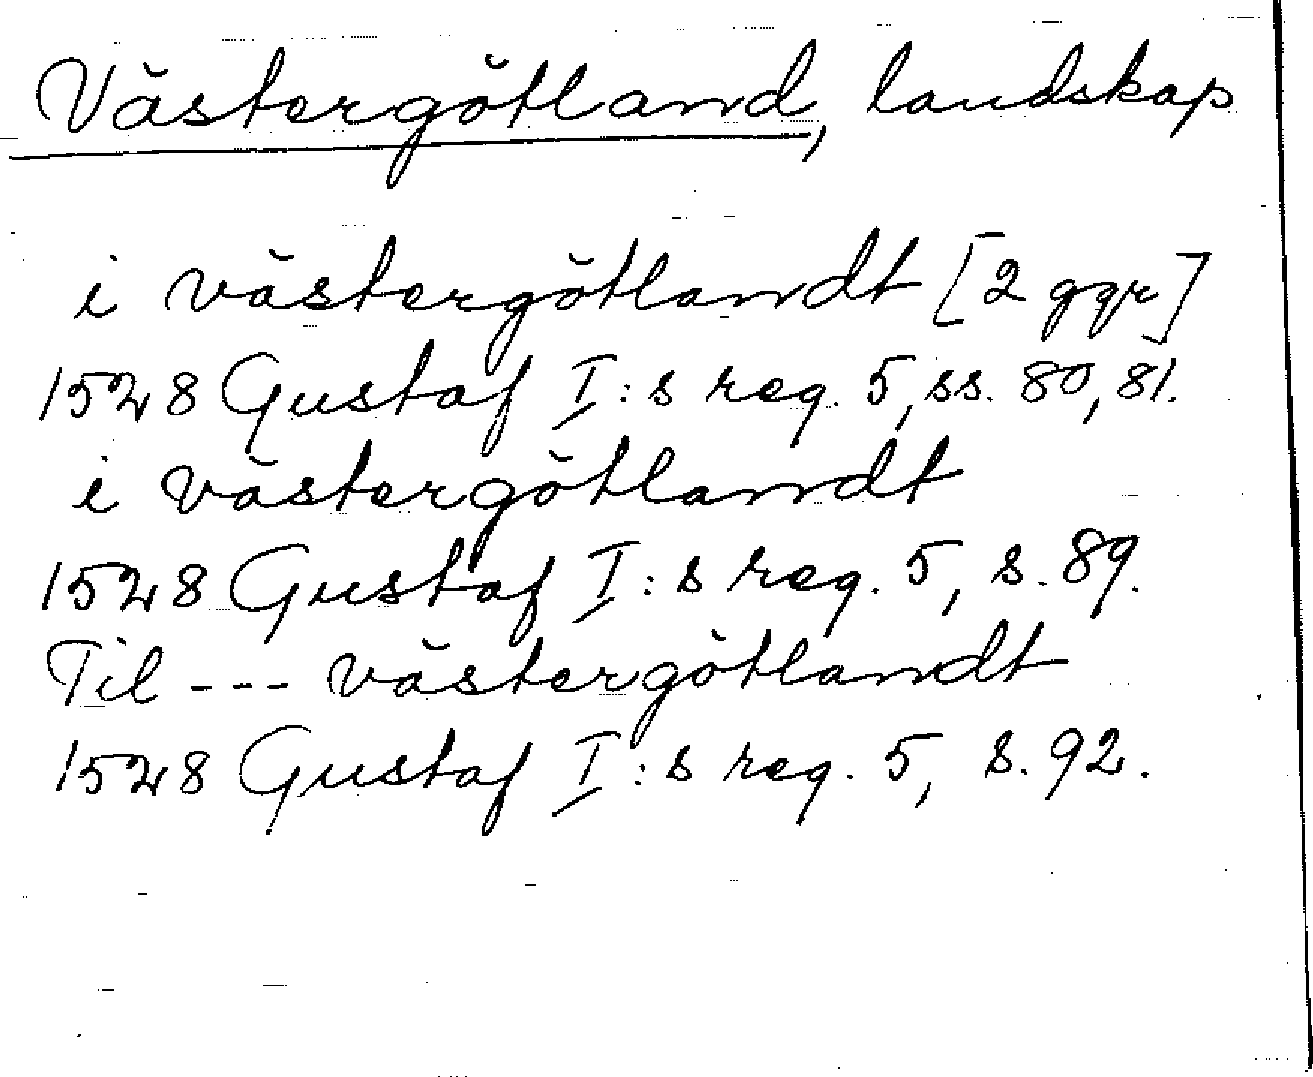 Västergötland, landskap
i västergötlandt [2 ggr]
1528 Gustaf I:s reg. 5, ss. 80, 81.
i västergötlandt
1528 Gustaf I:s reg. 5, s. 89.
Til --- västergötlandt
1528 Gustaf I:s reg. 5, s. 92.